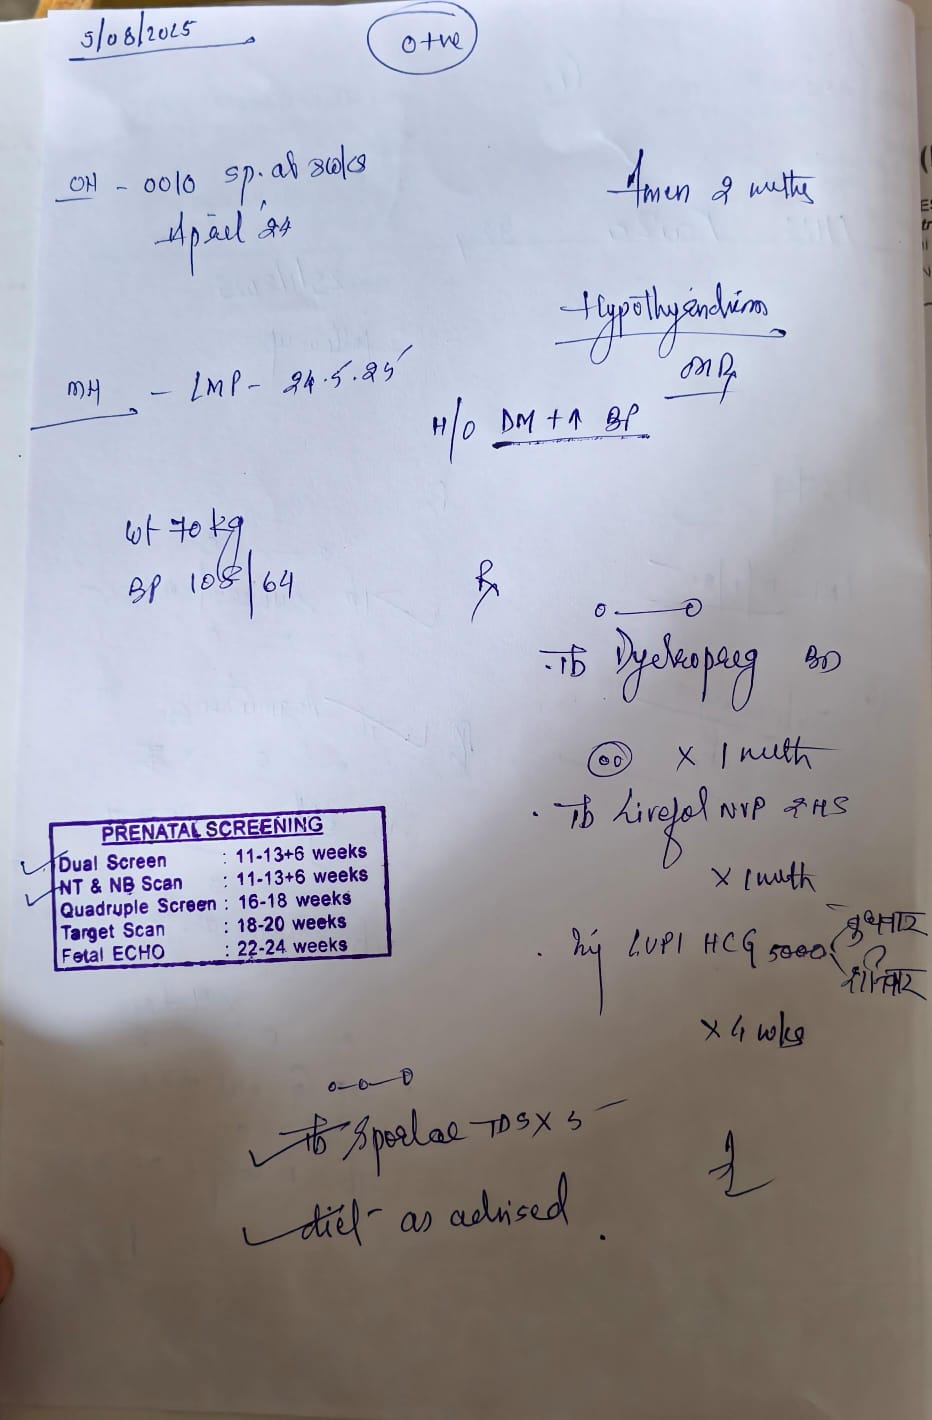 5/08/2025
O+ve
OH - 0010 sp. ab 8wks
April '24
Amen 2 mnths
Hypothyroidism
on Rx
MH - LMP - 24.5.25
H/O DM + ↑ BP
wt 70 kg
BP 108/64
Rx
Tb Dydropreg BD
x 1 mnth
Tb Livefol NVP 2 HS
x 1 mnth
Inj LUPI HCG 5000
बुधवार
शनिवार
x 4 wks
PRENATAL SCREENING
Dual Screen : 11-13+6 weeks
NT & NB Scan : 11-13+6 weeks
Quadruple Screen : 16-18 weeks
Target Scan : 18-20 weeks
Fetal ECHO : 22-24 weeks
Tb Sporlac TDS x 5
diet as advised.